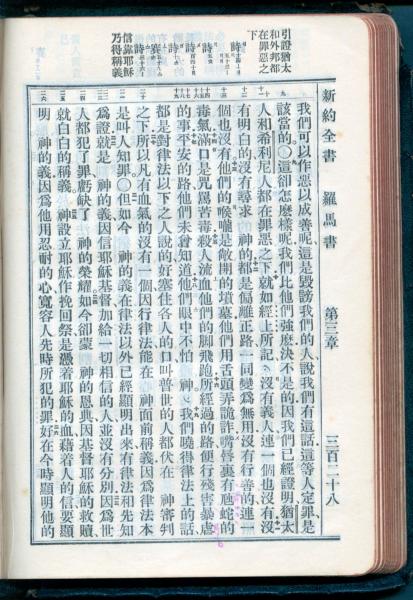 新約全書 羅馬書 第三章 三百二十八
引證猶太
和外邦都
在罪惡之
下
詩
詩
詩
詩
賽
詩
信靠耶穌
乃得稱義
我們可以作惡以成善呢這是毀謗我們的人說我們有這話這等人定罪是
該當的〇這卻怎麼樣呢我們比他們強麼決不是的因我們已經證明猶太
人和希利尼人都在罪惡之下就如經上所記沒有義人連一個也沒有沒
有明白的沒有尋求 神的都是偏離正路一同變爲無用沒有行善的連一
個也沒有他們的喉嚨是敞開的墳墓他們用舌頭弄詭詐嘴唇裏有虺蛇的
毒氣滿口是咒罵苦毒殺人流血他們的腳飛跑所經過的路便行殘害暴虐
的事平安的路他們未曾知道他們眼中不怕 神我們曉得律法上的話
都是對律法以下之人說的好塞住各人的口叫普世的人都伏在 神審判
之下所以凡有血氣的沒有一個因行律法能在 神面前稱義因爲律法本
是叫人知罪〇但如今 神的義在律法以外已經顯明出來有律法和先知
爲證就是 神的義因信耶穌基督加給一切相信的人並沒有分別因爲世
人都犯了罪虧缺了 神的榮耀如今卻蒙 神的恩典因基督耶穌的救贖
就白白的稱義 神設立耶穌作挽回祭是憑着耶穌的血藉着人的信要顯
明 神的義因爲他用忍耐的心寬容人先時所犯的罪好在今時顯明他的